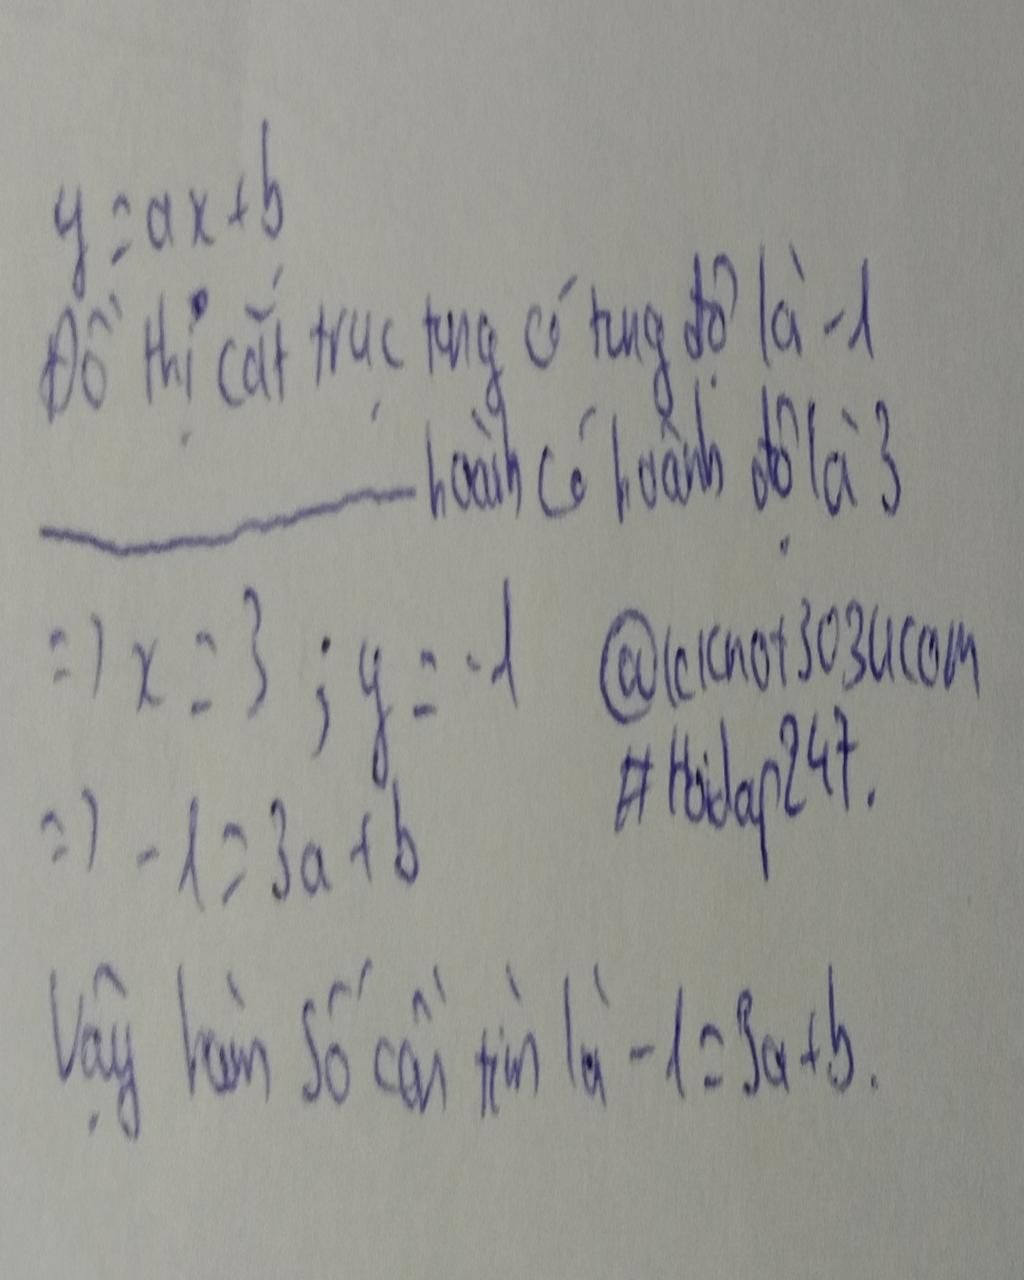 y = ax + b
Đồ thị cắt trục tung có tung độ là -1
hoành có hoành độ là 3
=> x = 3 ; y = -1
@kknot3034com
#Hoidap247.
=> -1 = 3a + b
Vậy hàm số cần tìm là -1 = 3a + b.